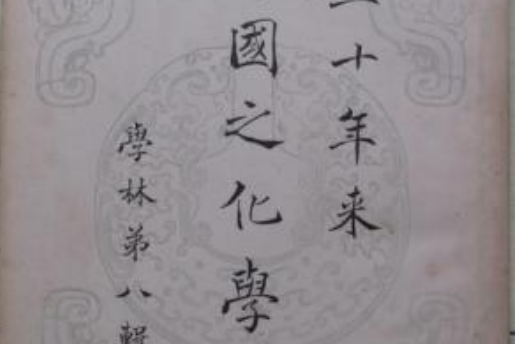 十年来
國之化學
學林第八輯